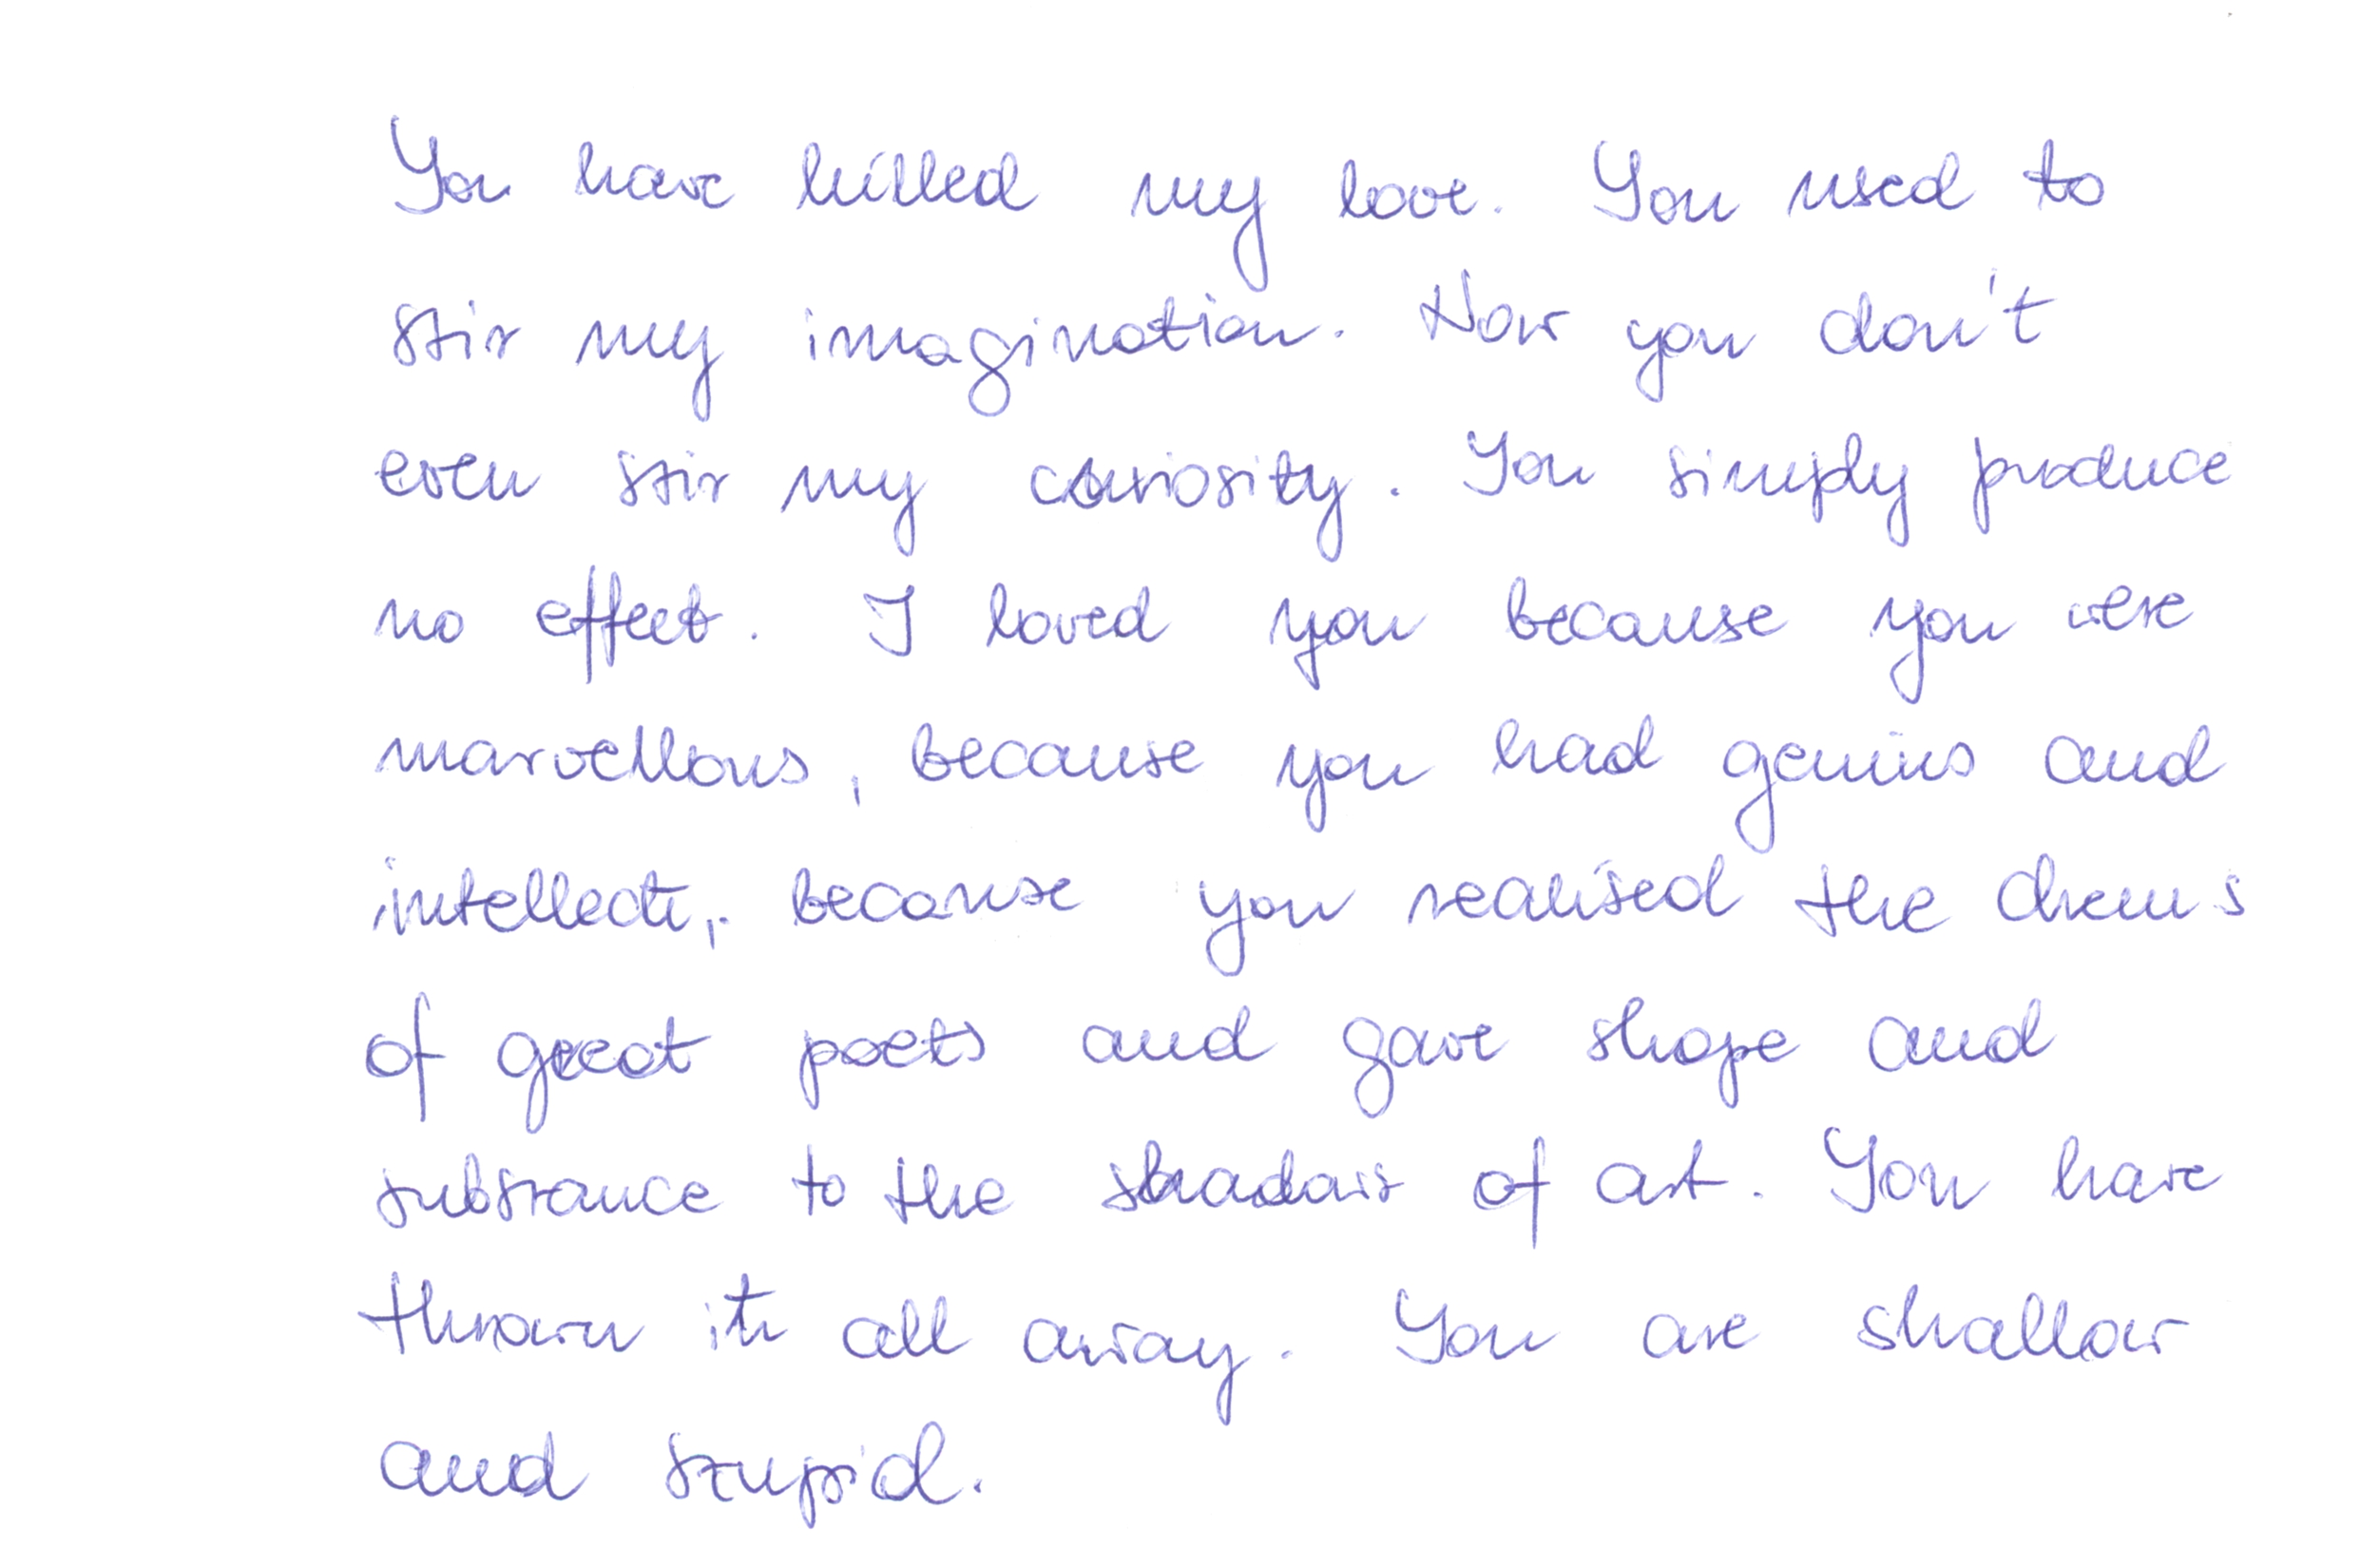 You have killed my love. You used to
stir my imagination. Now you don't
even stir my curiosity. You simply produce
no effect. I loved you because you were
marvellous, because you had genius and
intellect, because you realised the drems
of great poets and gave shape and
substance to the shadows of art. You have
thrown it all away. You are shallow
and stupid.